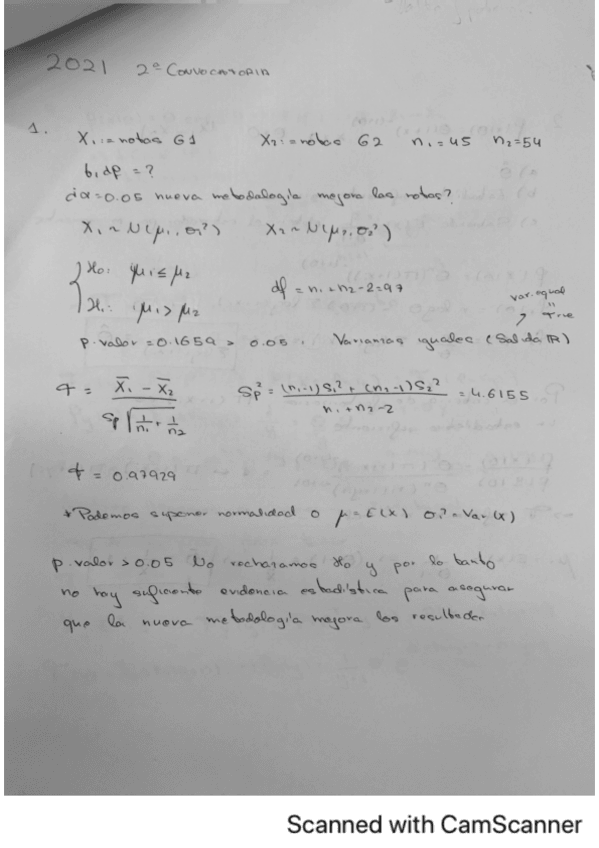 2021 2ª Convocatoria
1.
X₁ := notas G1 X₂ := notas G2 n₁ = 45 n₂ = 54
b, dp = ?
¿α=0.05 nueva metodología mejora las notas?
X₁ ~ N(μ₁, σ₁²) X₂ ~ N(μ₂, σ₂²)
{ H₀: μ₁ ≤ μ₂
df = n₁ + n₂ - 2 = 97
var.equal
"
true
H₁: μ₁ > μ₂
p-valor = 0.1659 > 0.05. Varianzas iguales (Salida R)
T = (X̄₁ - X̄₂) / (Sp √(1/n₁ + 1/n₂)) Sp² = ((n₁-1)S₁² + (n₂-1)S₂²) / (n₁ + n₂ - 2) = 4.6155
t = 0.97929
*Podemos suponer normalidad o μ = E(X) σ² = Var(X)
p-valor > 0.05 No rechazamos H₀ y por lo tanto
no hay suficiente evidencia estadística para asegurar
que la nueva metodología mejora los resultados
Scanned with CamScanner